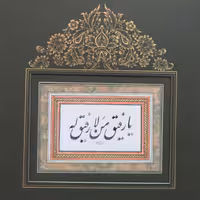 یا رفیق من لا رفیق له